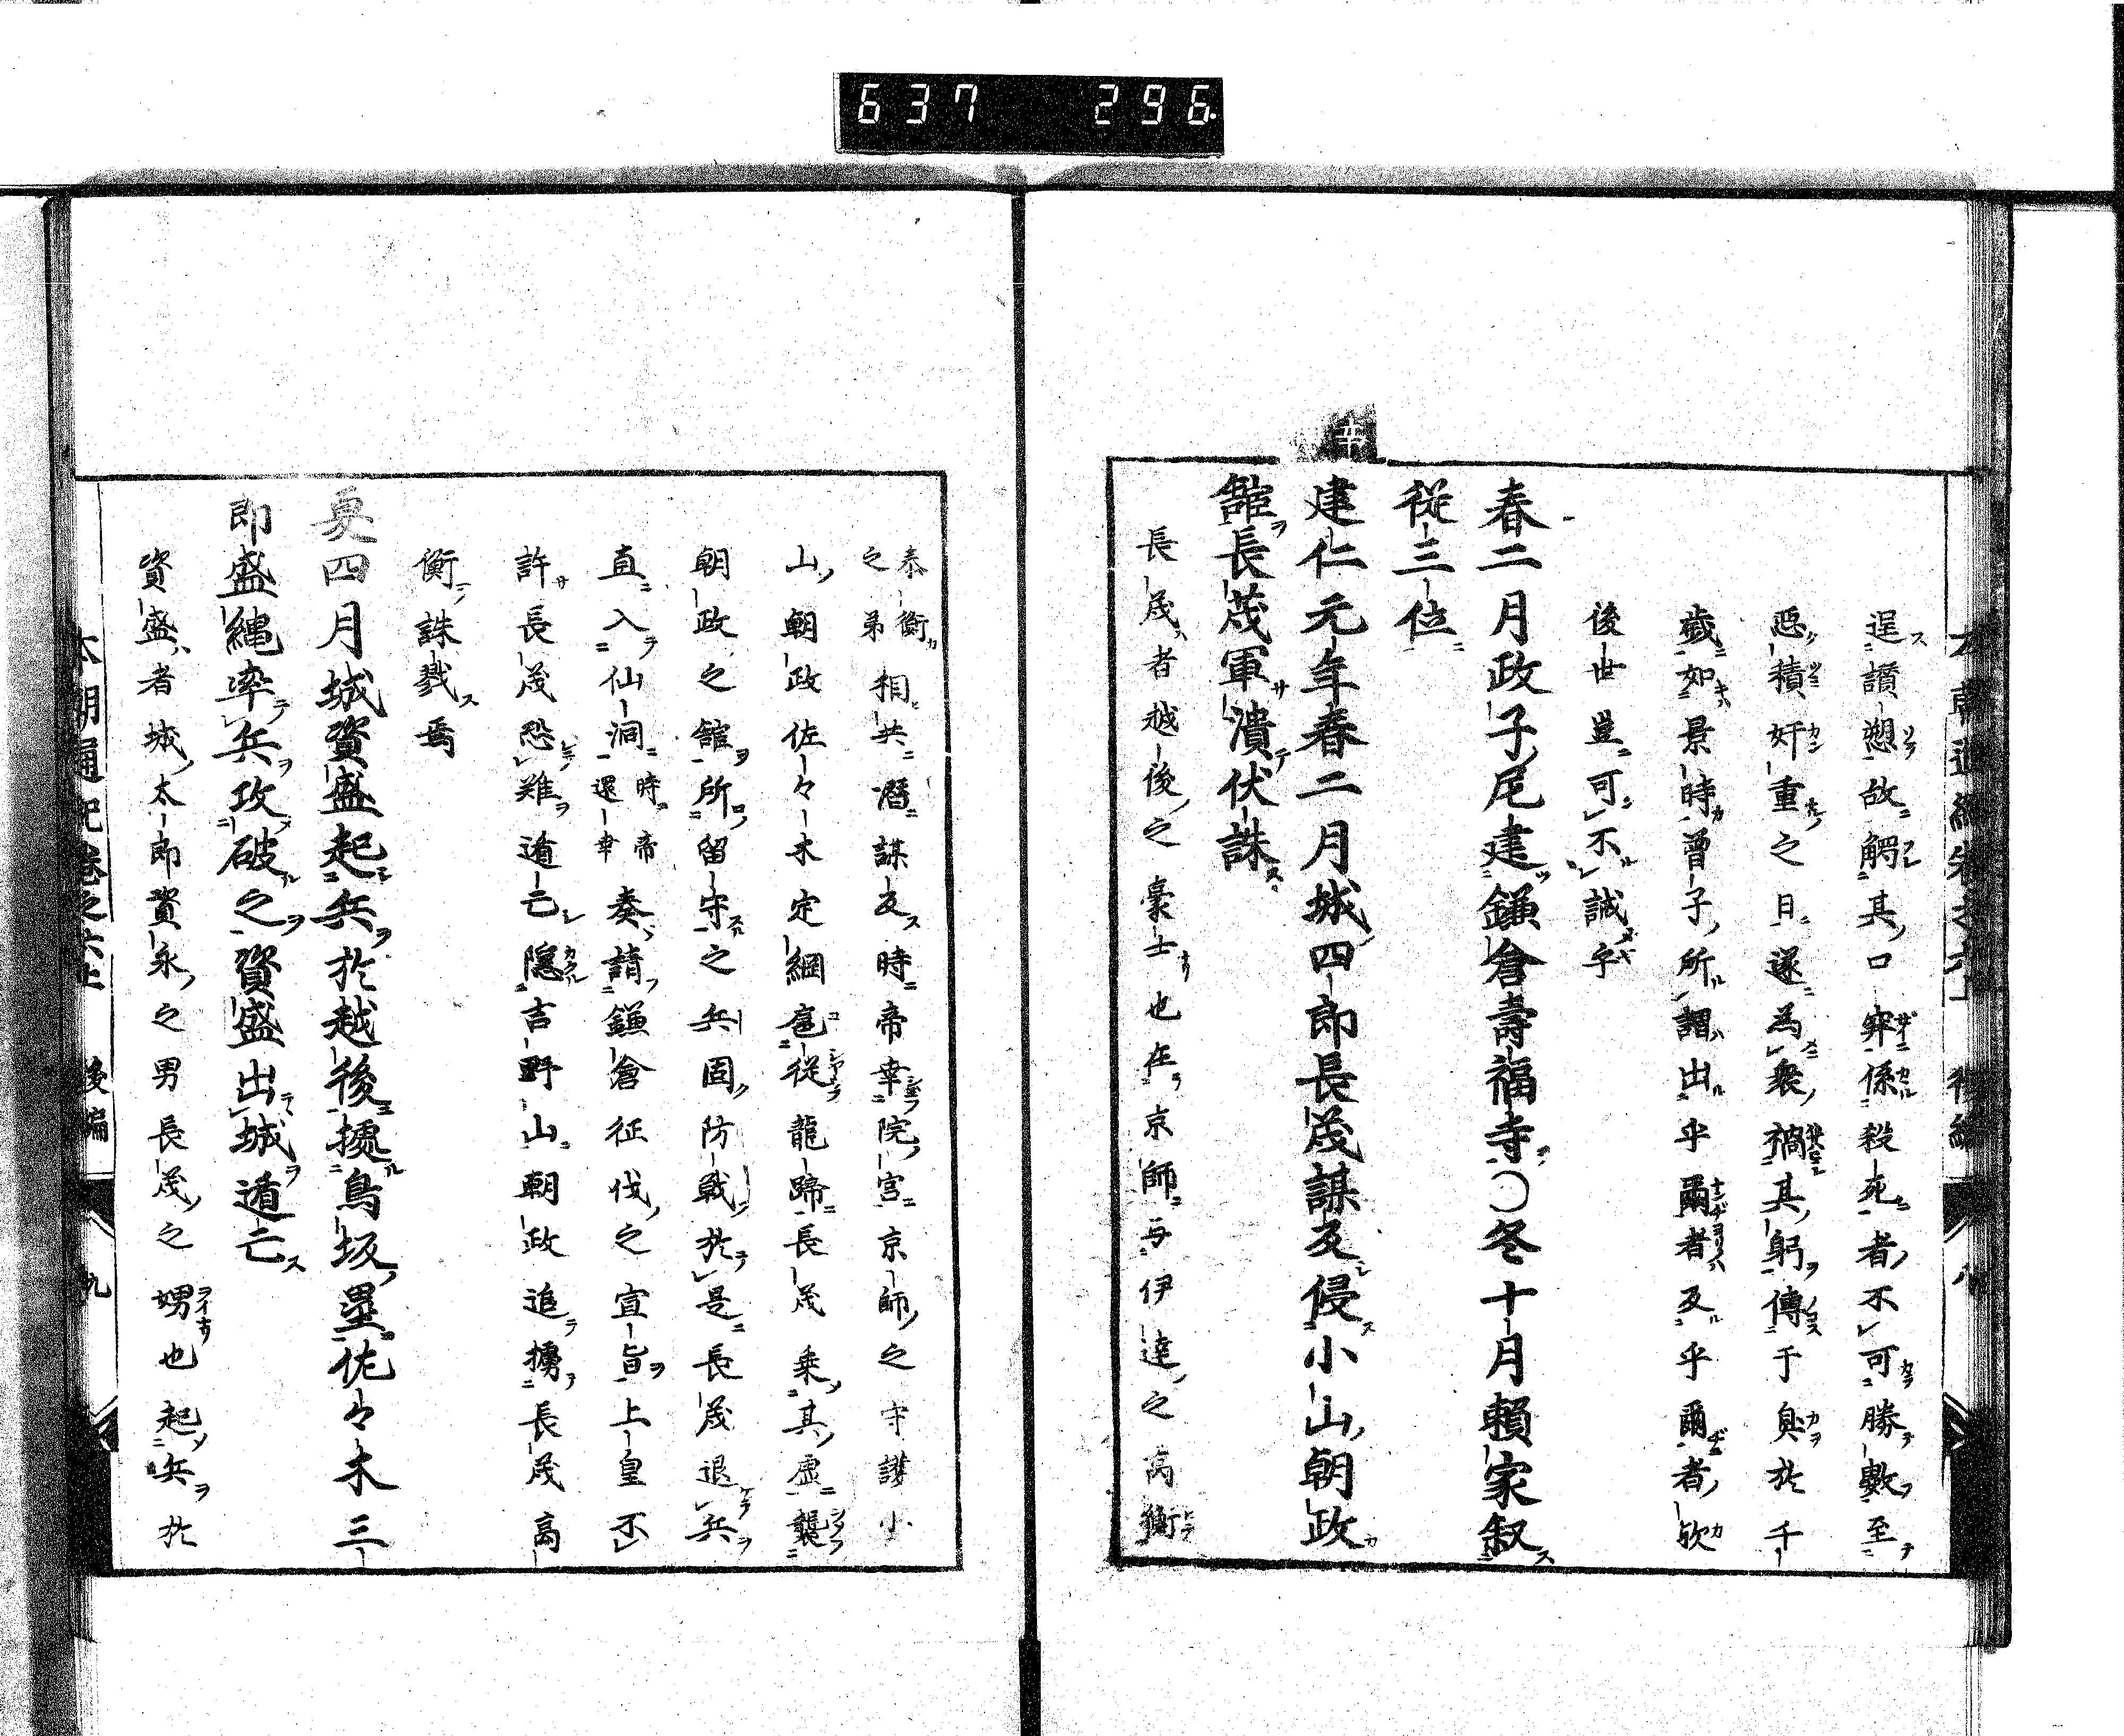 637 296
逞讚愬故觸其口穽係殺死者不可勝數至
惡積奸重之日遂為衆禍其躬傳于臭於千
歳如景時曾子所謂出乎爾者反乎爾者欤
後世豈可不誠乎
春二月政子尼建鎌倉壽福寺〇冬十月頼家叙
從三位
建仁元年春二月城四郎長茂謀反侵小山朝政
舘長茂軍潰伏誅
長茂者越後之豪士也在京師与伊達之高衡
泰衡之弟相共潛謀反時帝幸院宮京師之守護小
山朝政佐々木定綱扈從龍蹄長茂乗其虚襲
朝政之舘所留守之兵固防戦於是長茂退兵
直入仙洞時帝還幸奏請鎌倉征伐之宣旨上皇不
許長茂恐難遁亡隠吉野山朝政追擄長茂高
衡誅戮焉
夏四月城資盛起兵於越後據鳥坂壘佐々木三
郎盛縄率兵攻破之資盛出城遁亡
資盛者城太郎資永之男長茂之甥也起兵於
本朝通紀巻之六上 後編 九